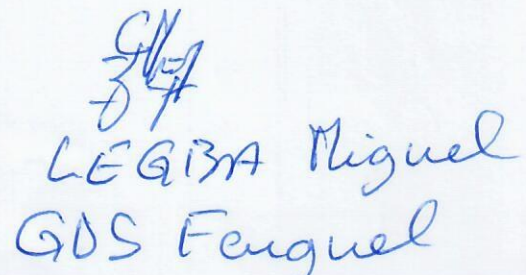 LEGBA Miguel
GDS Fauquel